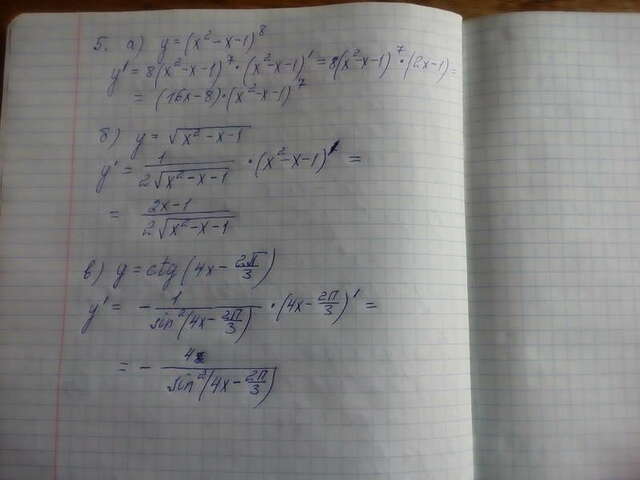 5. а) y = (x² - x - 1)⁸
y' = 8(x² - x - 1)⁷ · (x² - x - 1)' = 8(x² - x - 1)⁷ · (2x - 1) =
= (16x - 8) · (x² - x - 1)⁷
б) y = √(x² - x - 1)
y' = 1/(2√(x² - x - 1)) · (x² - x - 1)' =
= (2x - 1)/(2√(x² - x - 1))
в) y = ctg(4x - 2π/3)
y' = - 1/(sin²(4x - 2π/3)) · (4x - 2π/3)' =
= - 4/(sin²(4x - 2π/3))